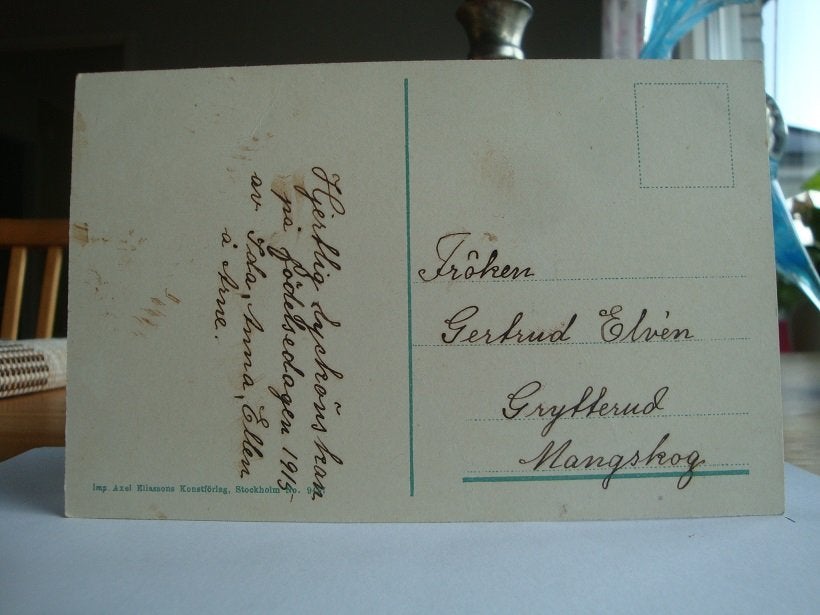 Hjertlig Lyckönskan
på födelsedagen 1915
av Ida, Anna, Ellen
å Arne.
Fröken
Gertrud Elvén
Grytterud
Mangskog
Imp. Axel Eliassons Konstförlag, Stockholm No.